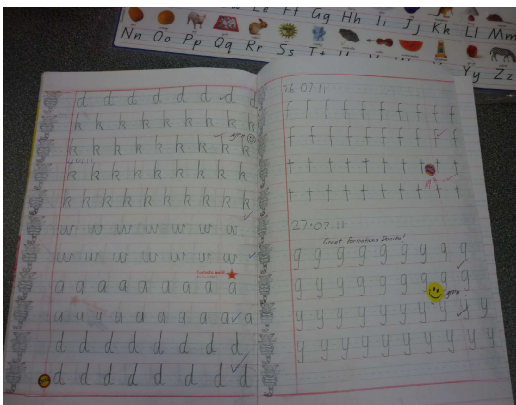 Ff Gg Hh Ii Jj Kk Ll Mm
Nn Oo Pp Qq Rr Ss Tt Yy Zz
d d d d d d d d
k k k k k k k k k k
k k k k k k k k k k
k k k k k k k k k k
k k k k k k k k k k
w w w w w w w
w w w w w w w
a a a a a a a a
u u u u u u u u u
d d d d d d d d
d d d d d d d d
26.07.11
f f f f f f f f f f
f f f f f f f f f f
t t t t t t t t t t
t t t t t t t t t t
27.07.11
Great formations
g g g g g g g g g
g g g g g g g g g
y y y y y y y y y y
y y y y y y y y y y